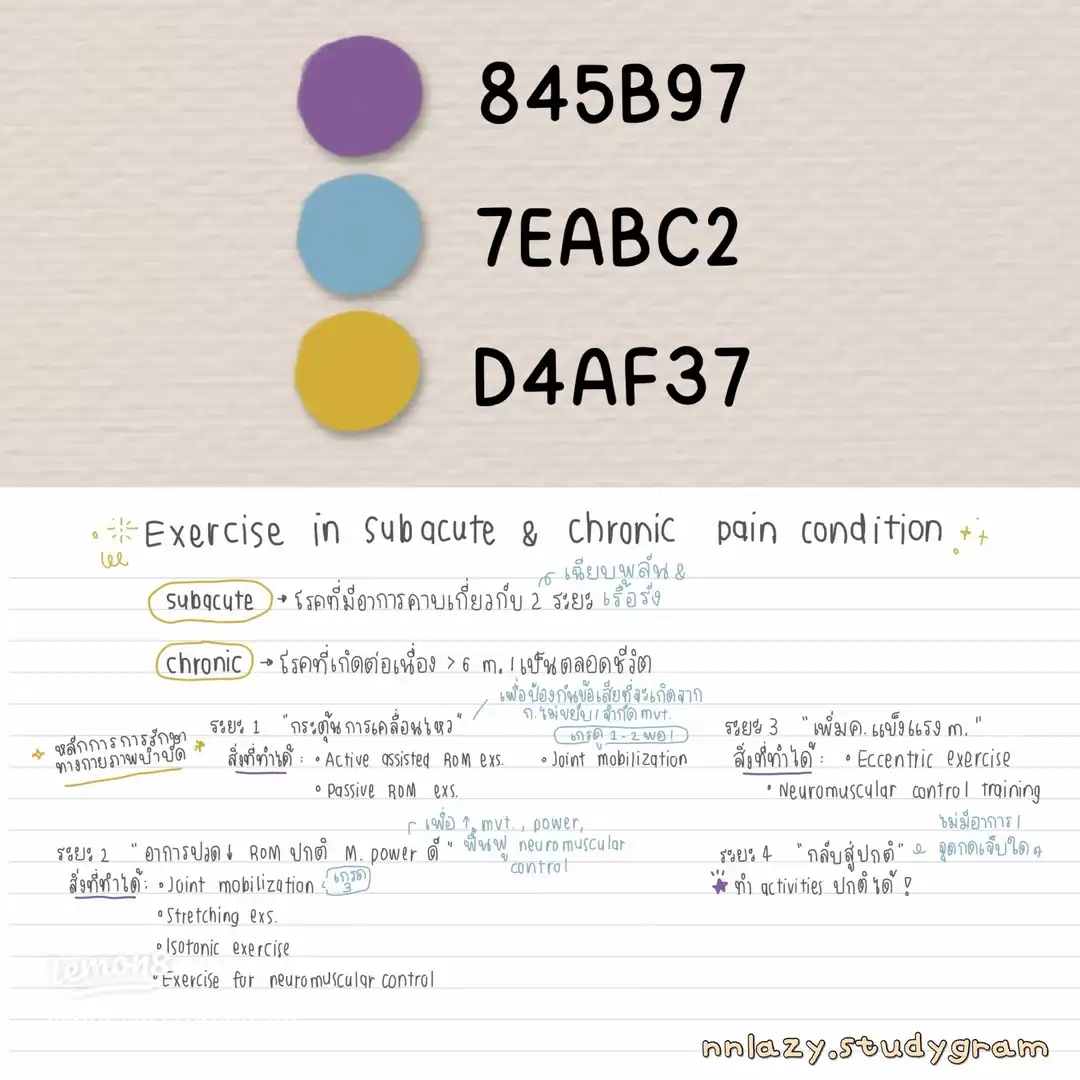 845B97
7EABC2
D4AF37
Exercise in subacute & chronic pain condition
subacute → โรคที่มีอาการคาบเกี่ยวกับ 2 ระยะ เฉียบพลัน & เรื้อรัง
chronic → โรคที่เกิดต่อเนื่อง > 6 m. / เป็นตลอดชีวิต
หลักการการรักษา
ทางกายภาพบำบัด
ระยะ 1 "กระตุ้นการเคลื่อนไหว"
เพื่อป้องกันข้อเสียที่จะเกิดจาก
ก. ไม่ขยับ / จำกัด mvt.
สิ่งที่ทำได้ : • Active assisted ROM exs.
• Passive ROM exs.
เกรด 1-2 พอ!
• Joint mobilization
ระยะ 2 "อาการปวด↓ ROM ปกติ M. power ดี"
เพื่อ ↑ mvt., power,
ฟื้นฟู neuromuscular
control
สิ่งที่ทำได้ : • Joint mobilization เกรด 3
• Stretching exs.
• Isotonic exercise
• Exercise for neuromuscular control
ระยะ 3 "เพิ่มค. แข็งแรง m."
สิ่งที่ทำได้ : • Eccentric exercise
• Neuromuscular control training
ระยะ 4 "กลับสู่ปกติ"
ไม่มีอาการ /
จุดกดเจ็บใด ๆ
ทำ activities ปกติได้ !
lemon8
nnlazy.studygram